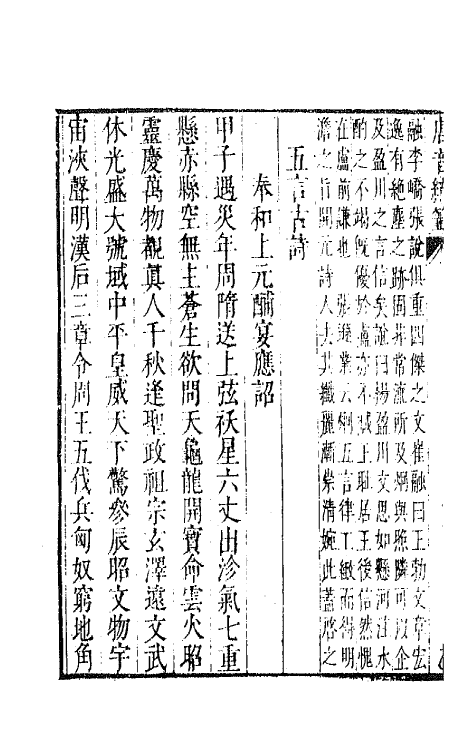 唐音統籤
融李嶠張說俱重四傑之文崔融曰王勃文章宏
逸有絕塵之跡固非常流所及炯與照隣可以企
及盈川之言信矣說曰揚盈川文思如懸河注水
酌之不竭既優於盧亦不減王耻居王後信然愧
在盧前謙也　張遜業云炯五言律工緻而得明
澹之旨開元詩人去其纖麗漸崇清婉此蓋啓之
五言古詩
奉和上元酺宴應詔
甲子遇災年周隋送上弦祅星六丈出沴氣七重
懸赤縣空無主蒼生欲問天龜龍開寶命雲火昭
靈慶萬物覩真人千秋逢聖政祖宗玄澤遠文武
休光盛大號域中平皇威天下驚參辰昭文物宇
宙浹聲明漢后三章令周王五伐兵匈奴窮地角